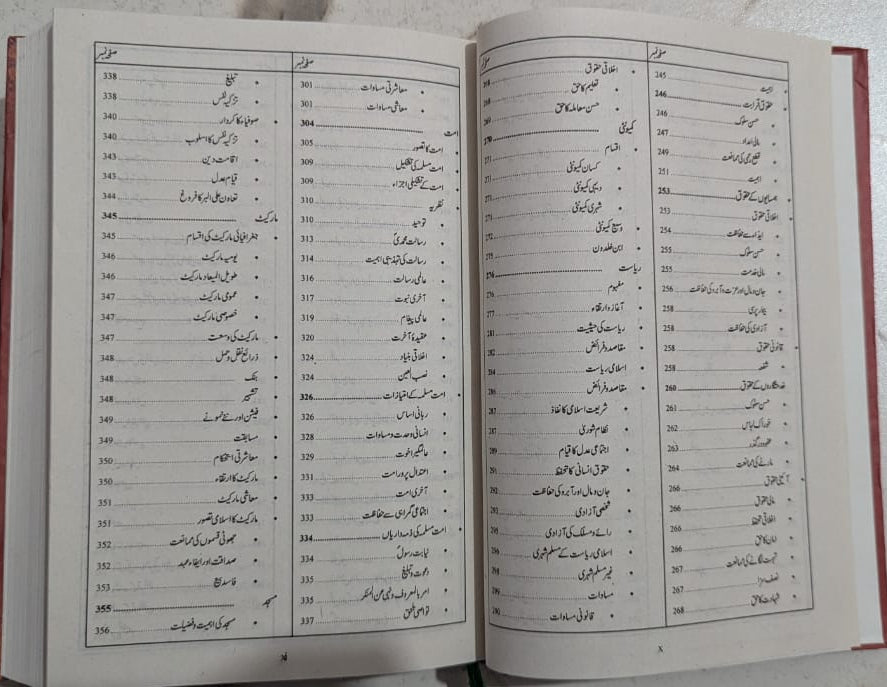 صفحہ نمبر
اہمیت 245
حقوق قرابت 246
حسن سلوک 246
مالی امداد 247
قطع رحمی کی ممانعت 249
اہمیت 251
ہمسایوں کے حقوق 253
اخلاقی حقوق 253
ایذاء سے حفاظت 254
حسن سلوک 255
مالی خدمت 255
جان و مال اور عزت و آبرو کی حفاظت 256
بیمار پرسی 258
آزادی کی حفاظت 258
قانونی حقوق 258
شفعہ 258
خدمتگاروں کے حقوق 260
حسن سلوک 261
خوراک لباس 262
عفو و درگذر 263
مارنے کی ممانعت 264
آئینی حقوق 266
مالی حقوق 266
اخلاقی تحفظ 266
امان کا حق 266
تہمت لگانے کی ممانعت 267
نصف سزا 267
شہادت کا حق 268
صفحہ نمبر
اخلاقی حقوق 268
تعلیم کا حق 268
حسن معاملہ کا حق 269
کمیونٹی 270
اقسام 271
کسان کمیونٹی 271
دیہی کمیونٹی 271
شہری کمیونٹی 271
وسیع کمیونٹی 272
ابن خلدون 275
ریاست 276
مفہوم 276
آغاز و ارتقاء 277
ریاست کی حیثیت 281
مقاصد و فرائض 282
اسلامی ریاست 284
مقاصد و فرائض 286
شریعت اسلامی کا نفاذ 287
نظام شوریٰ 287
اجتماعی عدل کا قیام 289
حقوق انسانی کا تحفظ 291
جان و مال اور آبرو کی حفاظت 292
شخصی آزادی 293
رائے و مسلک کی آزادی 295
اسلامی ریاست کے مسلم شہری 296
غیر مسلم شہری 298
مساوات 289
قانونی مساوات 290
X
صفحہ نمبر
معاشرتی مساوات 301
معاشی مساوات 303
امت 304
امت کا تصور 305
امت مسلمہ کی تشکیل 309
امت کے تشکیلی اجزاء 309
نظریہ 310
توحید 310
رسالت محمدیؐ 313
رسالت کی تہذیبی اہمیت 314
عالمی رسالت 316
آخری نبوت 317
عالمی پیغام 319
عقیدۂ آخرت 320
اخلاقی بنیاد 324
نصب العین 324
امت مسلمہ کے امتیازات 326
ربانی اساس 326
انسانی وحدت و مساوات 328
عالمگیر اخوت 329
اعتدال پرور امت 331
آخری امت 333
اجتماعی گمراہی سے حفاظت 333
امت مسلمہ کی ذمہ داریاں 334
نیابت رسولؐ 334
دعوت و تبلیغ 335
امر بالمعروف و نہی عن المنکر 335
تواصی بالحق 337
صفحہ نمبر
تبلیغ 338
تزکیہ نفس 338
صوفیاء کا کردار 340
تزکیہ نفس کا اسلوب 340
اقامت دین 343
قیام عدل 343
تعاون علی البر کا فروغ 344
مارکیٹ 345
جغرافیائی مارکیٹ کی اقسام 345
یومیہ مارکیٹ 346
طویل المیعاد مارکیٹ 346
عمومی مارکیٹ 347
خصوصی مارکیٹ 347
مارکیٹ کی وسعت 347
ذرائع نقل و حمل 348
بنک 348
تشہیر 348
فیشن اور نئے نمونے 349
مسابقت 349
معاشرتی استحکام 350
مارکیٹ کا ارتقاء 350
معاشی مارکیٹ 351
مارکیٹ کا اسلامی تصور 351
جھوٹی قسموں کی ممانعت 352
صداقت اور ایفاء عہد 352
فاسد بیع 353
مسجد 355
مسجد کی اہمیت و فضیلت 356
xi